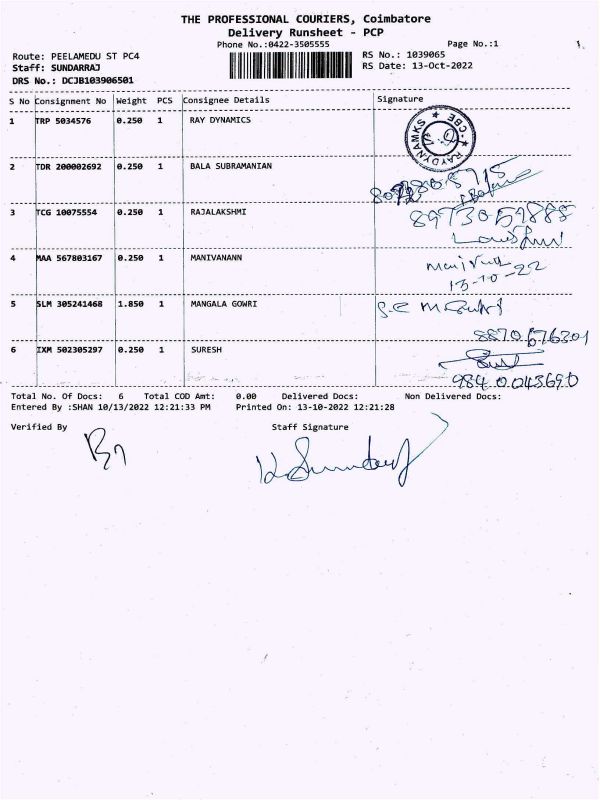 THE PROFESSIONAL COURIERS, Coimbatore
Delivery Runsheet - PCP
Phone No.:0422-3505555 Page No.:1
Route: PEELAMEDU ST PC4 RS No.: 1039065
Staff: SUNDARRAJ RS Date: 13-Oct-2022
DRS No.: DCJB103906501
S No Consignment No Weight PCS Consignee Details Signature
1 TRP 5034576 0.250 1 RAY DYNAMICS
RAYDYNAMKS CBE
2 TDR 200002692 0.250 1 BALA SUBRAMANIAN
3 TCG 10075554 0.250 1 RAJALAKSHMI
4 MAA 567803167 0.250 1 MANIVANANN
13-10-22
5 SLM 305241468 1.850 1 MANGALA GOWRI
8870676301
6 IXM 502305297 0.250 1 SURESH
Total No. Of Docs: 6 Total COD Amt: 0.00 Delivered Docs: Non Delivered Docs:
Entered By :SHAN 10/13/2022 12:21:33 PM Printed On: 13-10-2022 12:21:28
Verified By Staff Signature